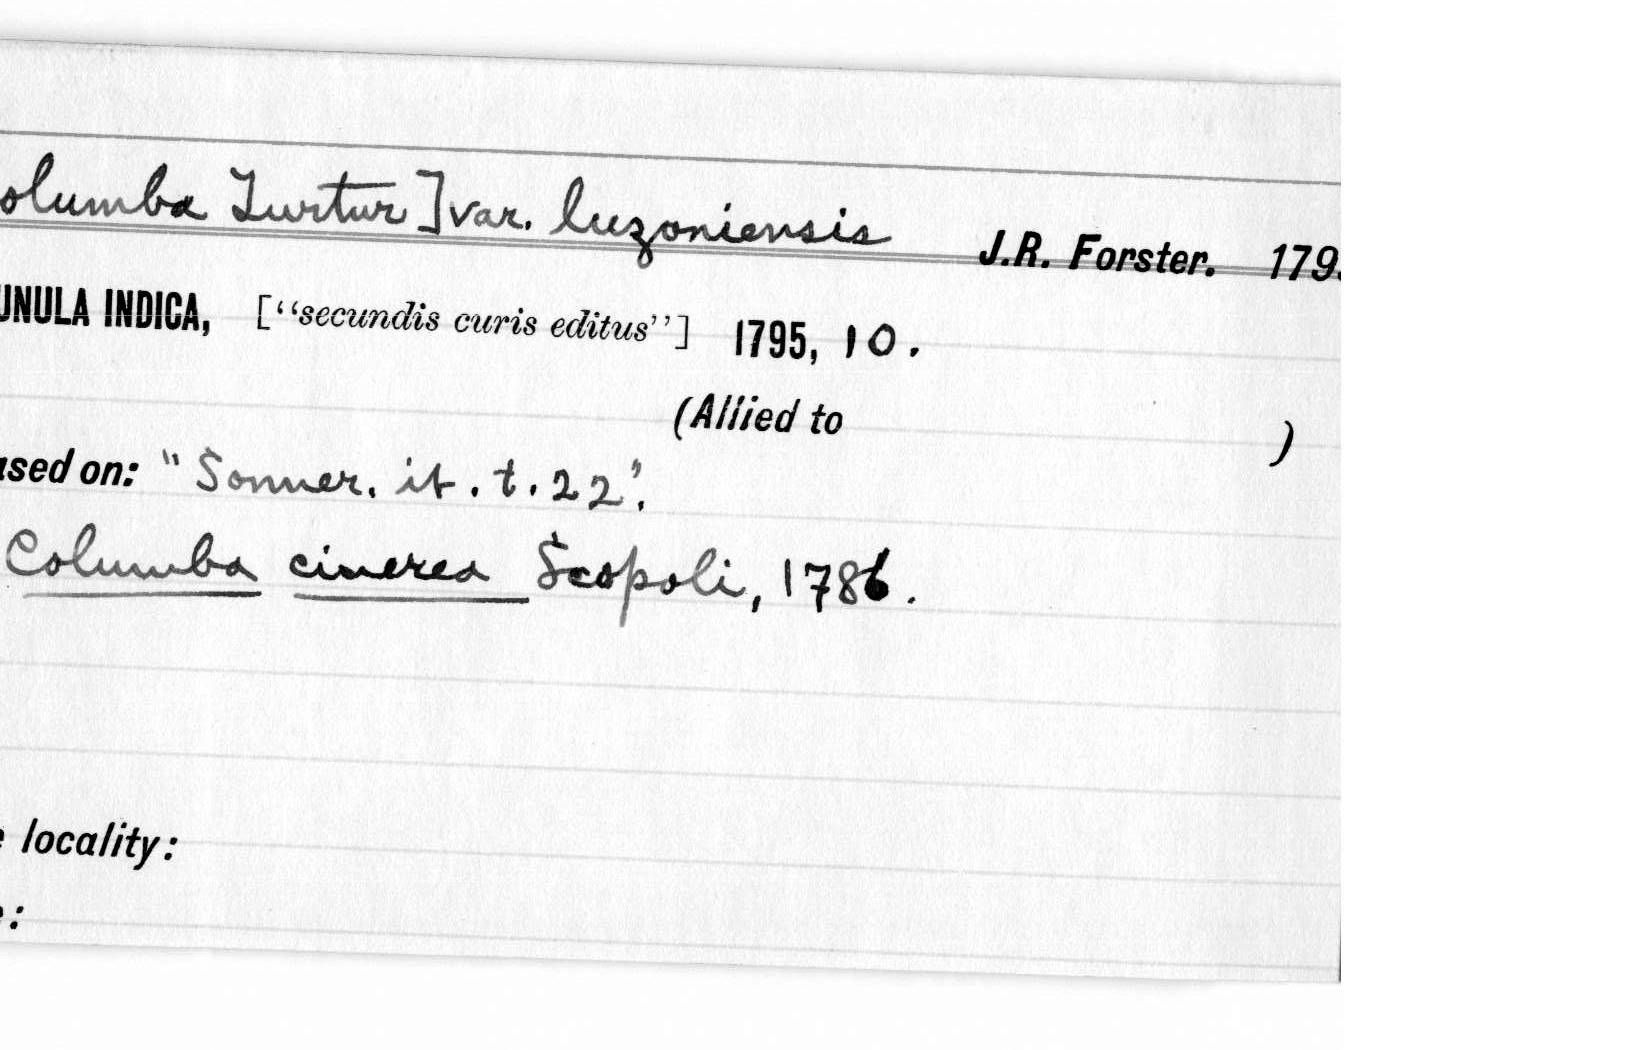 olumba Turtur] var. luzoniensis J.R. Forster. 179
UNULA INDICA, [“secundis curis editus”] 1795, 10.
(Allied to )
ased on: "Sonner. it. t. 22".
Columba cinerea Scopoli, 1786.
e locality:
e: